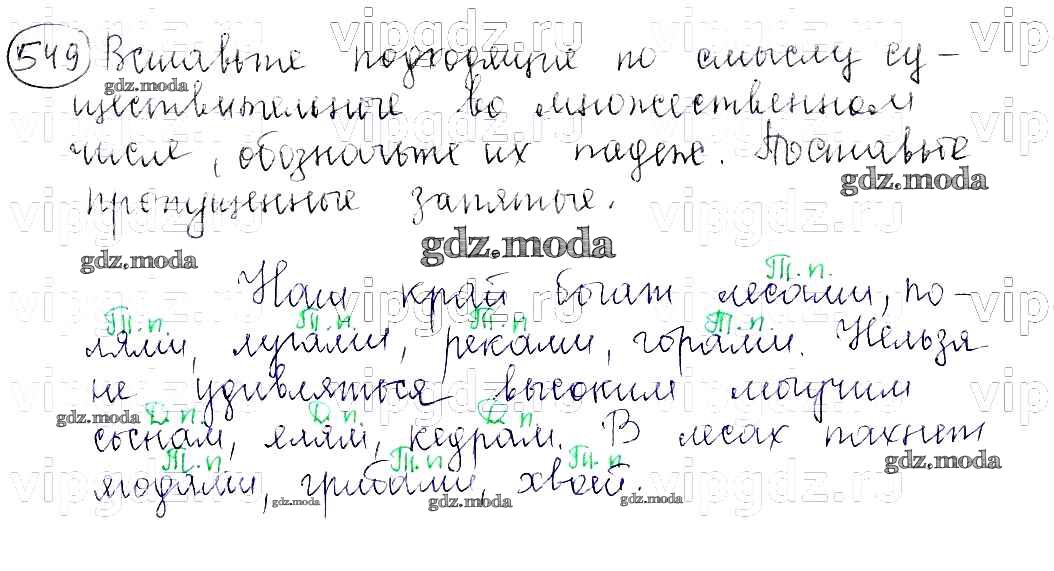 549 Вставьте подходящие по смыслу су-
ществительные во множественном
числе, обозначьте их падеж. Поставьте
пропущенные запятые.
Т.п.
Наш край богат лесами, по-
Т.п. Т.п. Т.п. Т.п.
лями, лугами, реками, горами. Нельзя
не удивляться высоким могучим
Д п. Д.п. Д п.
соснам, елям, кедрам. В лесах пахнет
Т.п. Т.п. Т.п.
ягодами, грибами, хвоей.
vipgdz.ru
gdz.moda